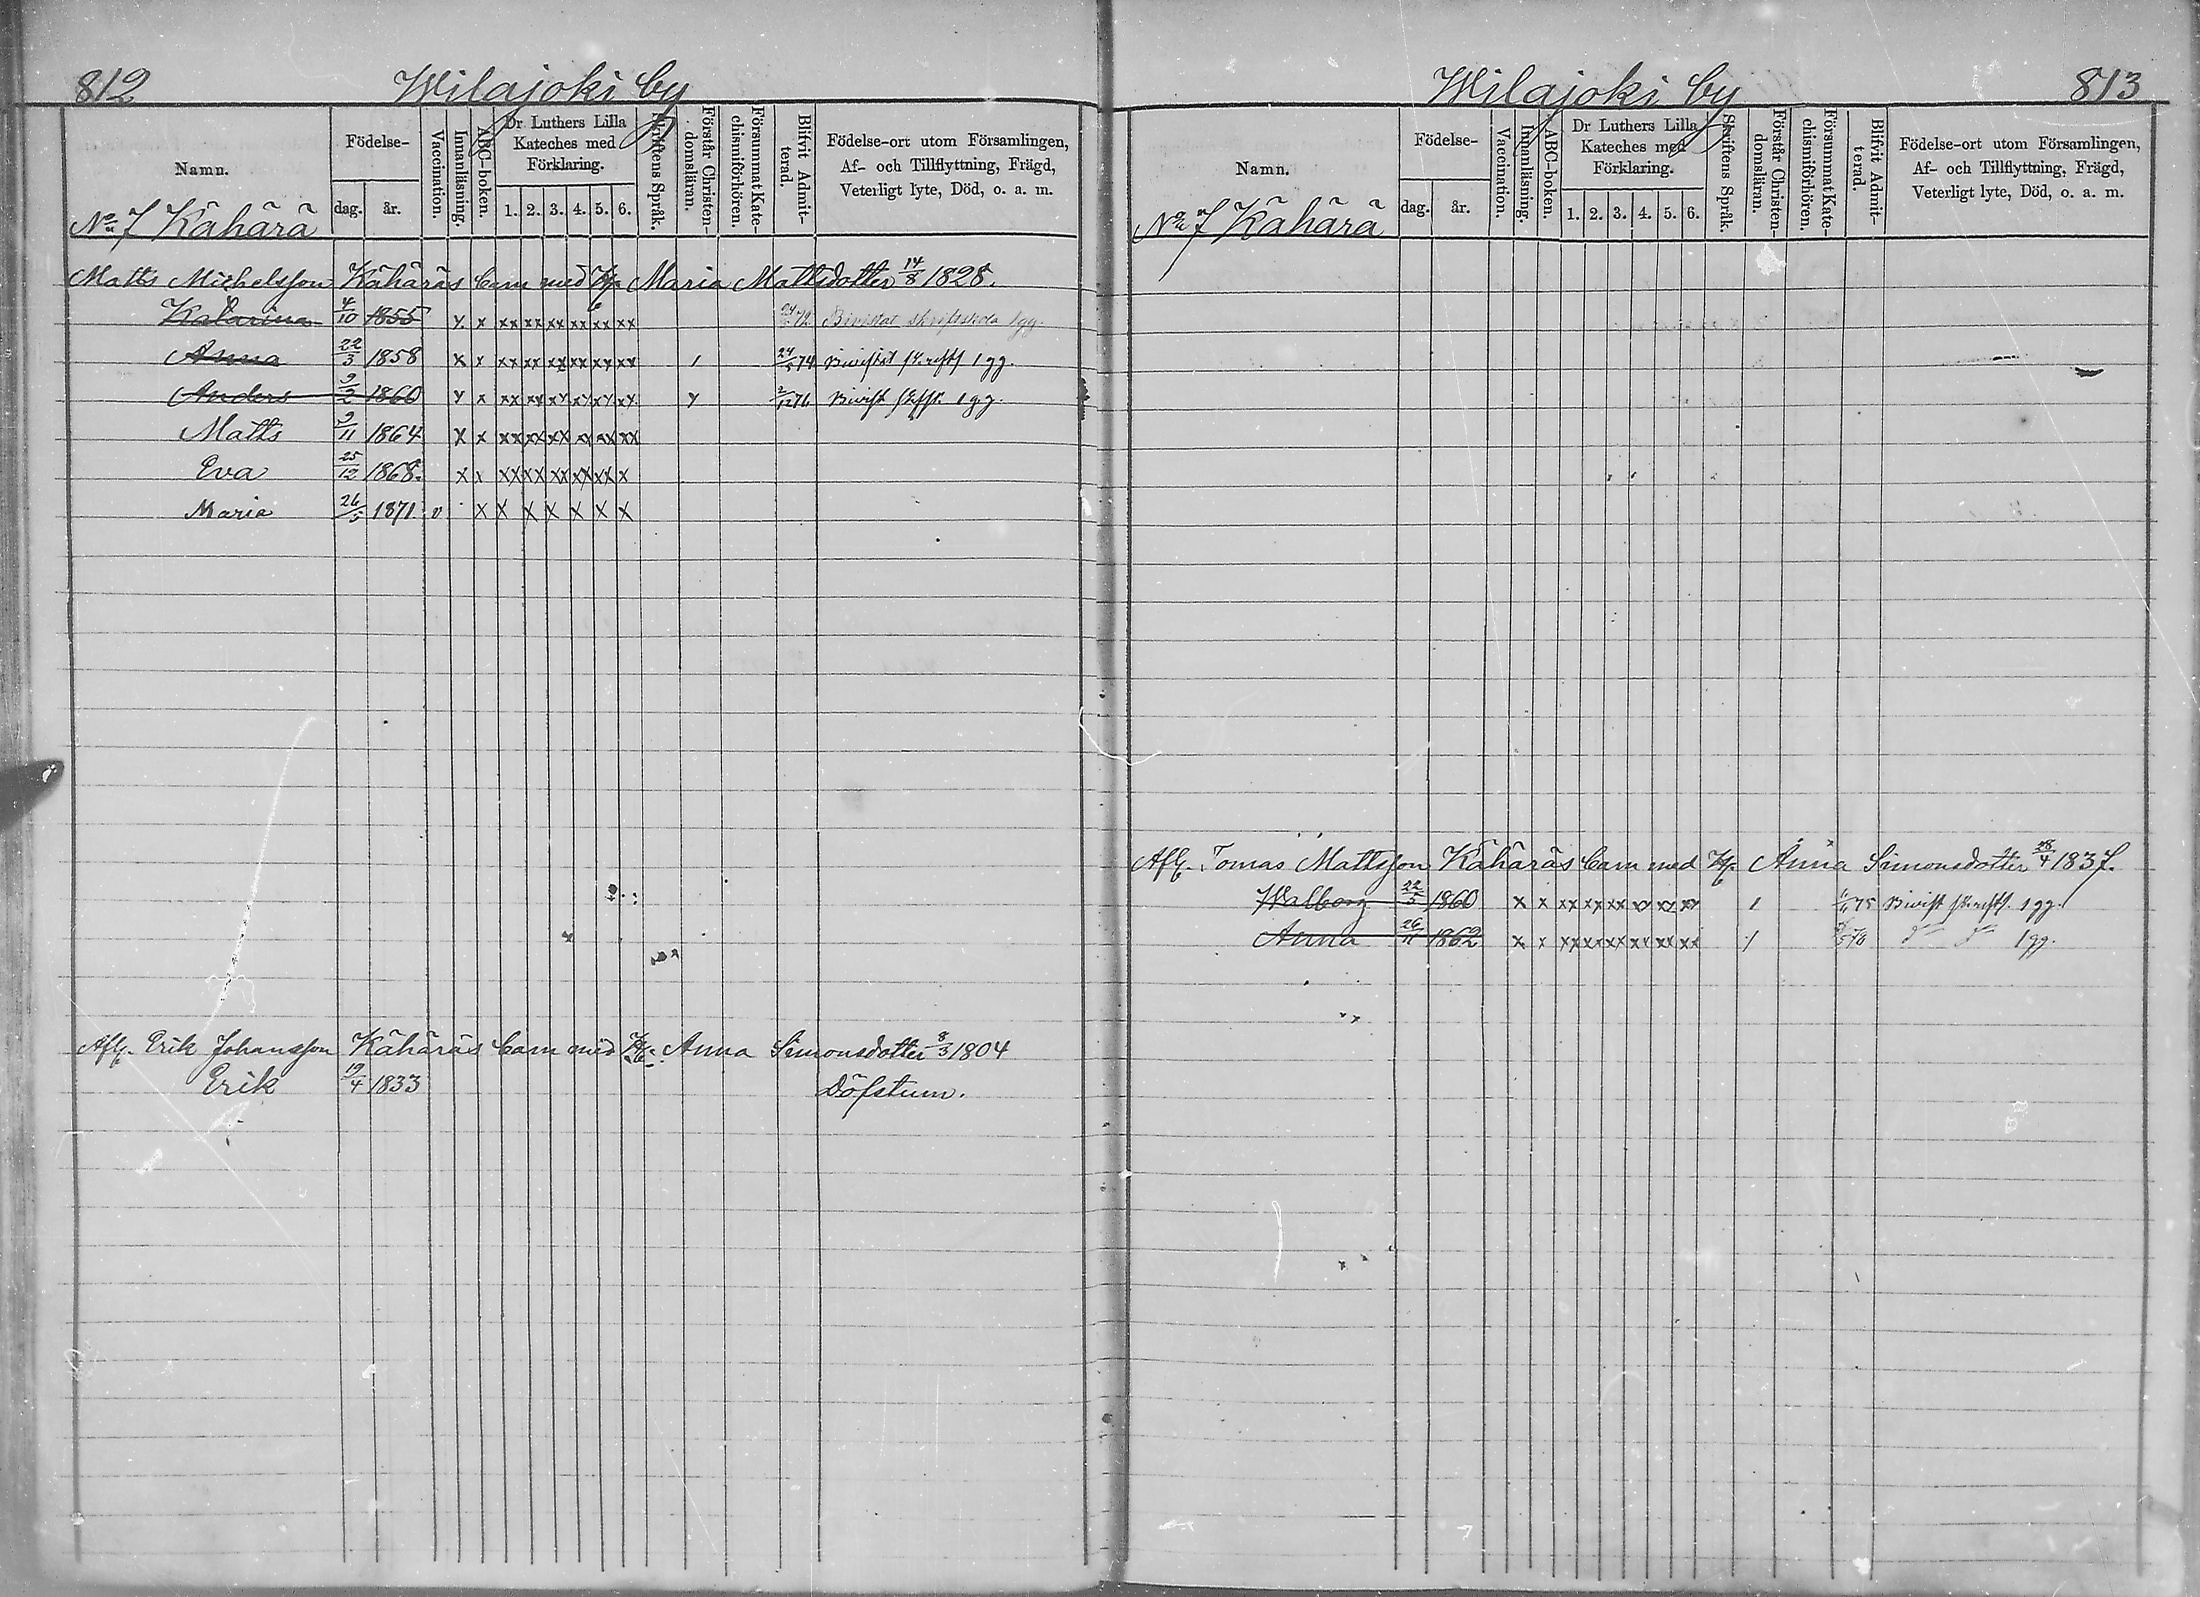 812
Wilajoki by
Namn.
Födelse-
dag.
år.
Vaccination.
Innanläsning.
ABC-boken.
Dr Luthers Lilla
Kateches med
Förklaring.
1. 2. 3. 4. 5. 6.
Skriftens Språk.
Förstår Christen-
domsläran.
Försummat Kate-
chismiförhören.
Blifvit Admit-
terad.
Födelse-ort utom Församlingen,
Af- och Tillflyttning, Frägd,
Veterligt lyte, Död, o. a. m.
No 7 Kähärä
Matts Michelsson Kähäräs barn med H. Maria Mattsdotter 14/8 1828.
Katarina 4/10 1855 x x xx xx xx xx xx xx Bivistat skriftskola 1 gg.
Anna 22/3 1858 x x xx xx xx xx xx xx 1 24/5 74 Bivistat 1 gg.
Anders 9/2 1860 x x xx xx xx xx xx xx 2/12 76 Bivist 1 gg.
Matts 9/11 1864 x x xx xx xx xx xx xx
Eva 25/12 1868. x x xx xx xx xx xx x
Maria 26/5 1871 v x x x x x x x
Afl. Erik Johansson Kähäräs barn med H. Anna Simonsdotter 8/3 1804
Erik 19/4 1833 Döfstum.
Wilajoki by
813
Namn.
Födelse-
dag.
år.
Vaccination.
Innanläsning.
ABC-boken.
Dr Luthers Lilla
Kateches med
Förklaring.
1. 2. 3. 4. 5. 6.
Skriftens Språk.
Förstår Christen-
domsläran.
Försummat Kate-
chismiförhören.
Blifvit Admit-
terad.
Födelse-ort utom Församlingen,
Af- och Tillflyttning, Frägd,
Veterligt lyte, Död, o. a. m.
No 7 Kähärä
Afl. Tomas Mattsson Kähäräs barn med H. Anna Simonsdotter 28/4 1837.
Walborg 22/5 1860 x x xx xx xx xx xx xx 1 75 Bivist 1 gg.
Anna 26/11 1862 x x xx xx xx xx xx xx 1 78 1 gg.